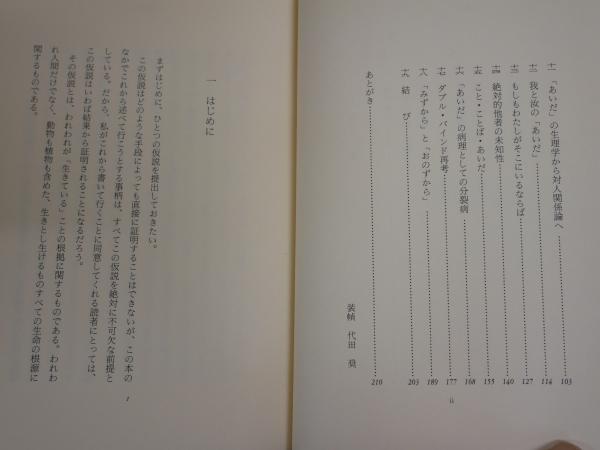 十一 「あいだ」の生理学から対人関係論へ……103
十二 我と汝の「あいだ」……114
十三 もしもわたしがそこにいるならば……127
十四 絶対的他者の未知性……140
十五 こと・ことば・あいだ……155
十六 「あいだ」の病理としての分裂病……168
十七 ダブル・バインド再考……177
十八 「みずから」と「おのずから」……189
十九 結 び……203
あとがき……210
装幀 代田 奨
ii
一 はじめに
まずはじめに、ひとつの仮説を提出しておきたい。
この仮説はどのような手段によっても直接に証明することはできないが、この本の
なかでこれから述べて行こうとする事柄は、すべてこの仮説を絶対に不可欠な前提と
している。だから、私がこれから書いて行くことに同意してくれる読者にとっては、
この仮説はいわば結果から証明されることになるだろう。
その仮説とは、われわれが「生きている」ことの根拠に関するものである。われわ
れ人間だけでなく、動物も植物も含めた、生きとし生けるものすべての生命の根源に
関するものである。
1